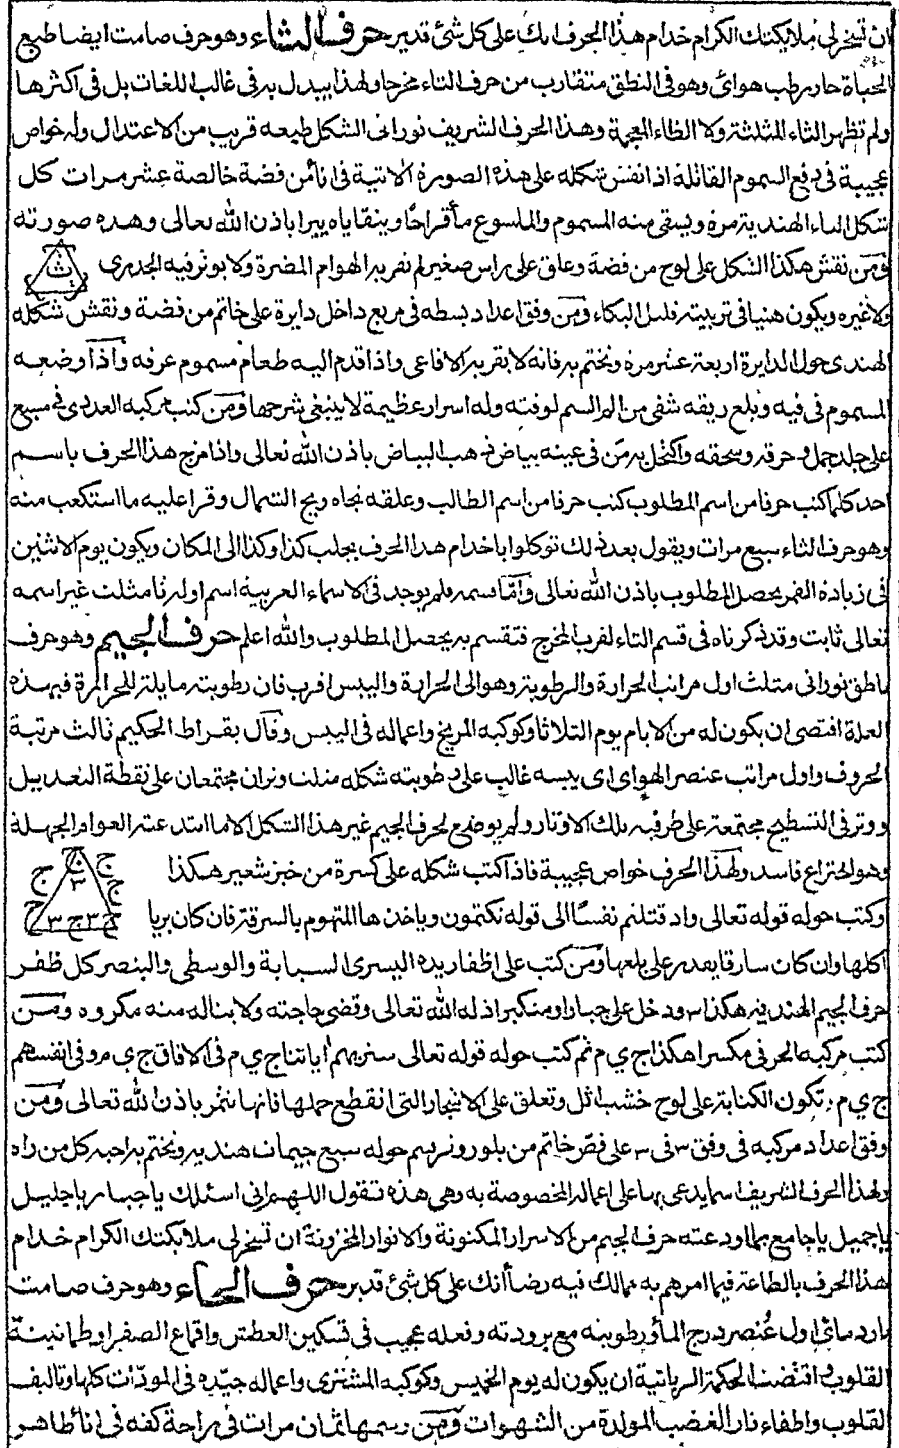 ان تسخر لى ملايكتك الكرام خدام هذا الحرف انك على كل شئ قدير حرف الثاء وهو حرف صامت ايضا طبع
الحياة حار رطب هوائى وهو فى النطق متقارب من حرف التاء مخرجا ولهذا يبدل به فى غالب اللغات بل فى اكثرها
ولم تظهر الثاء المثلثة ولا الظاء المعجمة وهذا الحرف الشريف نورانى الشكل طبعه قريب من الاعتدال وله خواص
عجيبة فى دفع السموم القاتلة اذا نقش شكله على هذه الصورة الاتية فى اناء من فضة خالصة عشر مرات كل
شكل الثاء الهندية مرة ويسقى منه المسموم والملسوع مأ قراحا ويتقاياه يبرا باذن الله تعالى وهذه صورته
ومن نقش هكذا الشكل على لوح من فضة وعلق على راس صغير لم تقربه الهوام المضرة ولا يوثر فيه الجدرى
ث ث ث
ولا غيره ويكون هنيا فى تربيته قليل البكاء ومن وفق اعداد بسطه فى مربع داخل دايرة على خاتم من فضة ونقش شكله
الهندى حول الدايرة اربعة عشر مرة وتختم به فانه لا يقربه الافاعى واذا قدم اليه طعام مسموم عرفه واذا وضعه
المسموم فى فيه وبلع ريقه شفى من الم السم لوقته وله اسرار عظيمة لا ينبغى شرحها ومن كتب مركبه العددى فى مسبع
على جلد جمل وحرقه وسحقه واكتحل به من فى عينه بياض ذهب البياض باذن الله تعالى واذا مزج هذا الحرف باسم
احد كلما كتب حرفا من اسم المطلوب كتب حرفا من اسم الطالب وعلقه تجاه ريح الشمال وقرا عليه ما استكعب منه
وهو حرف الثاء سبع مرات ويقول بعد ذلك توكلوا يا خدام هذا الحرف بجلب كذا وكذا الى المكان ويكون يوم الاثنين
فى زيادة القمر يحصل المطلوب باذن الله تعالى واما قسمه فلم يوجد فى الاسماء العربية اسم اوله ثا مثلث غير اسمه
تعالى ثابت وقد ذكرناه فى قسم التاء لقرب المخرج فتقسم به يحصل المطلوب والله اعلم حرف الجيم وهو حرف
ناطق نورانى مثلث اول مراتب الحرارة والرطوبة وهو الى الحرارة واليبس اقرب فان رطوبته مايلة للحرارة فبهذه
العلة اقتضى ان يكون له من الايام يوم الثلاثا وكوكبه المريخ واعماله فى اليبس وقال بقراط الحكيم ثالث مرتبة
الحروف واول مراتب عنصر الهوائى يبسه غالب على رطوبته شكله مثلث وتران مجتمعان على نقطة التعديل
ووتر فى التسطيح مجتمعة على طرفيه تلك الاوتار ولم يوضع لحرف الجيم غير هذا الشكل الا ما ابتدعته العوام الجهلة
وهو اختراع فاسد ولهذا الحرف خواص عجيبة فاذا كتب شكله على كسرة من خبز شعير هكذا
ج ج ٣ ج ج ج ج ٣ ج ٣ ج
وكتب حوله قوله تعالى واذ قتلتم نفسًا الى قوله تكتمون وياخذها المتهوم بالسرقة فان كان بريا
اكلها وان كان سارقا لم يقدر على بلعها ومن كتب على اظفار يده اليسرى السبابة والوسطى والبنصر كل ظفر
حرف الجيم الهندية هكذا ٣ ودخل على جبار او متكبر اذله الله تعالى وقضى حاجته ولا يناله منه مكروه ومن
كتب مركبه الحرفى مكسرا هكذا ج ى م ثم كتب حوله قوله تعالى سنريهم اياتنا ج ى م فى الافاق ج ى م وفى انفسهم
ج ى م وتكون الكتابة على لوح خشب اثل وتعلق على الاشجار التى انقطع حملها فانها تثمر باذن الله تعالى ومن
وفق اعداد مركبه فى وفق ٣ فى ٣ على فص خاتم من بلور ونرسم حوله سبع جيمات هندية وتختم به احبه كل من راه
ولهذا الحرف الشريف اسما يدعى بها على اعماله المخصوصة به وهى هذه تقول اللهم انى اسئلك يا جبار يا جليل
يا جميل يا جامع بما اودعته حرف الجيم من الاسرار المكنونة والانوار المخزونة ان تسخر لى ملايكتك الكرام خدام
هذا الحرف بالطاعة فيما امرهم به مما لك فيه رضأ انك على كل شئ قدير حرف الحاء وهو حرف صامت
بارد مائى اول عُنصر درج المأ ورطوبته مع برودته وفعله عجيب فى تسكين العطش واقماع الصفرا وطمانينة
القلوب اقتضت الحكمة الربانية ان يكون له يوم الخميس وكوكبه المشترى واعماله جيّده فى المودّات كلها وتاليف
القلوب واطفاء نار الغضب المولدة من الشهوات ومن رسمها ثمان مرات فى راحة كفه فى انأ طاهر